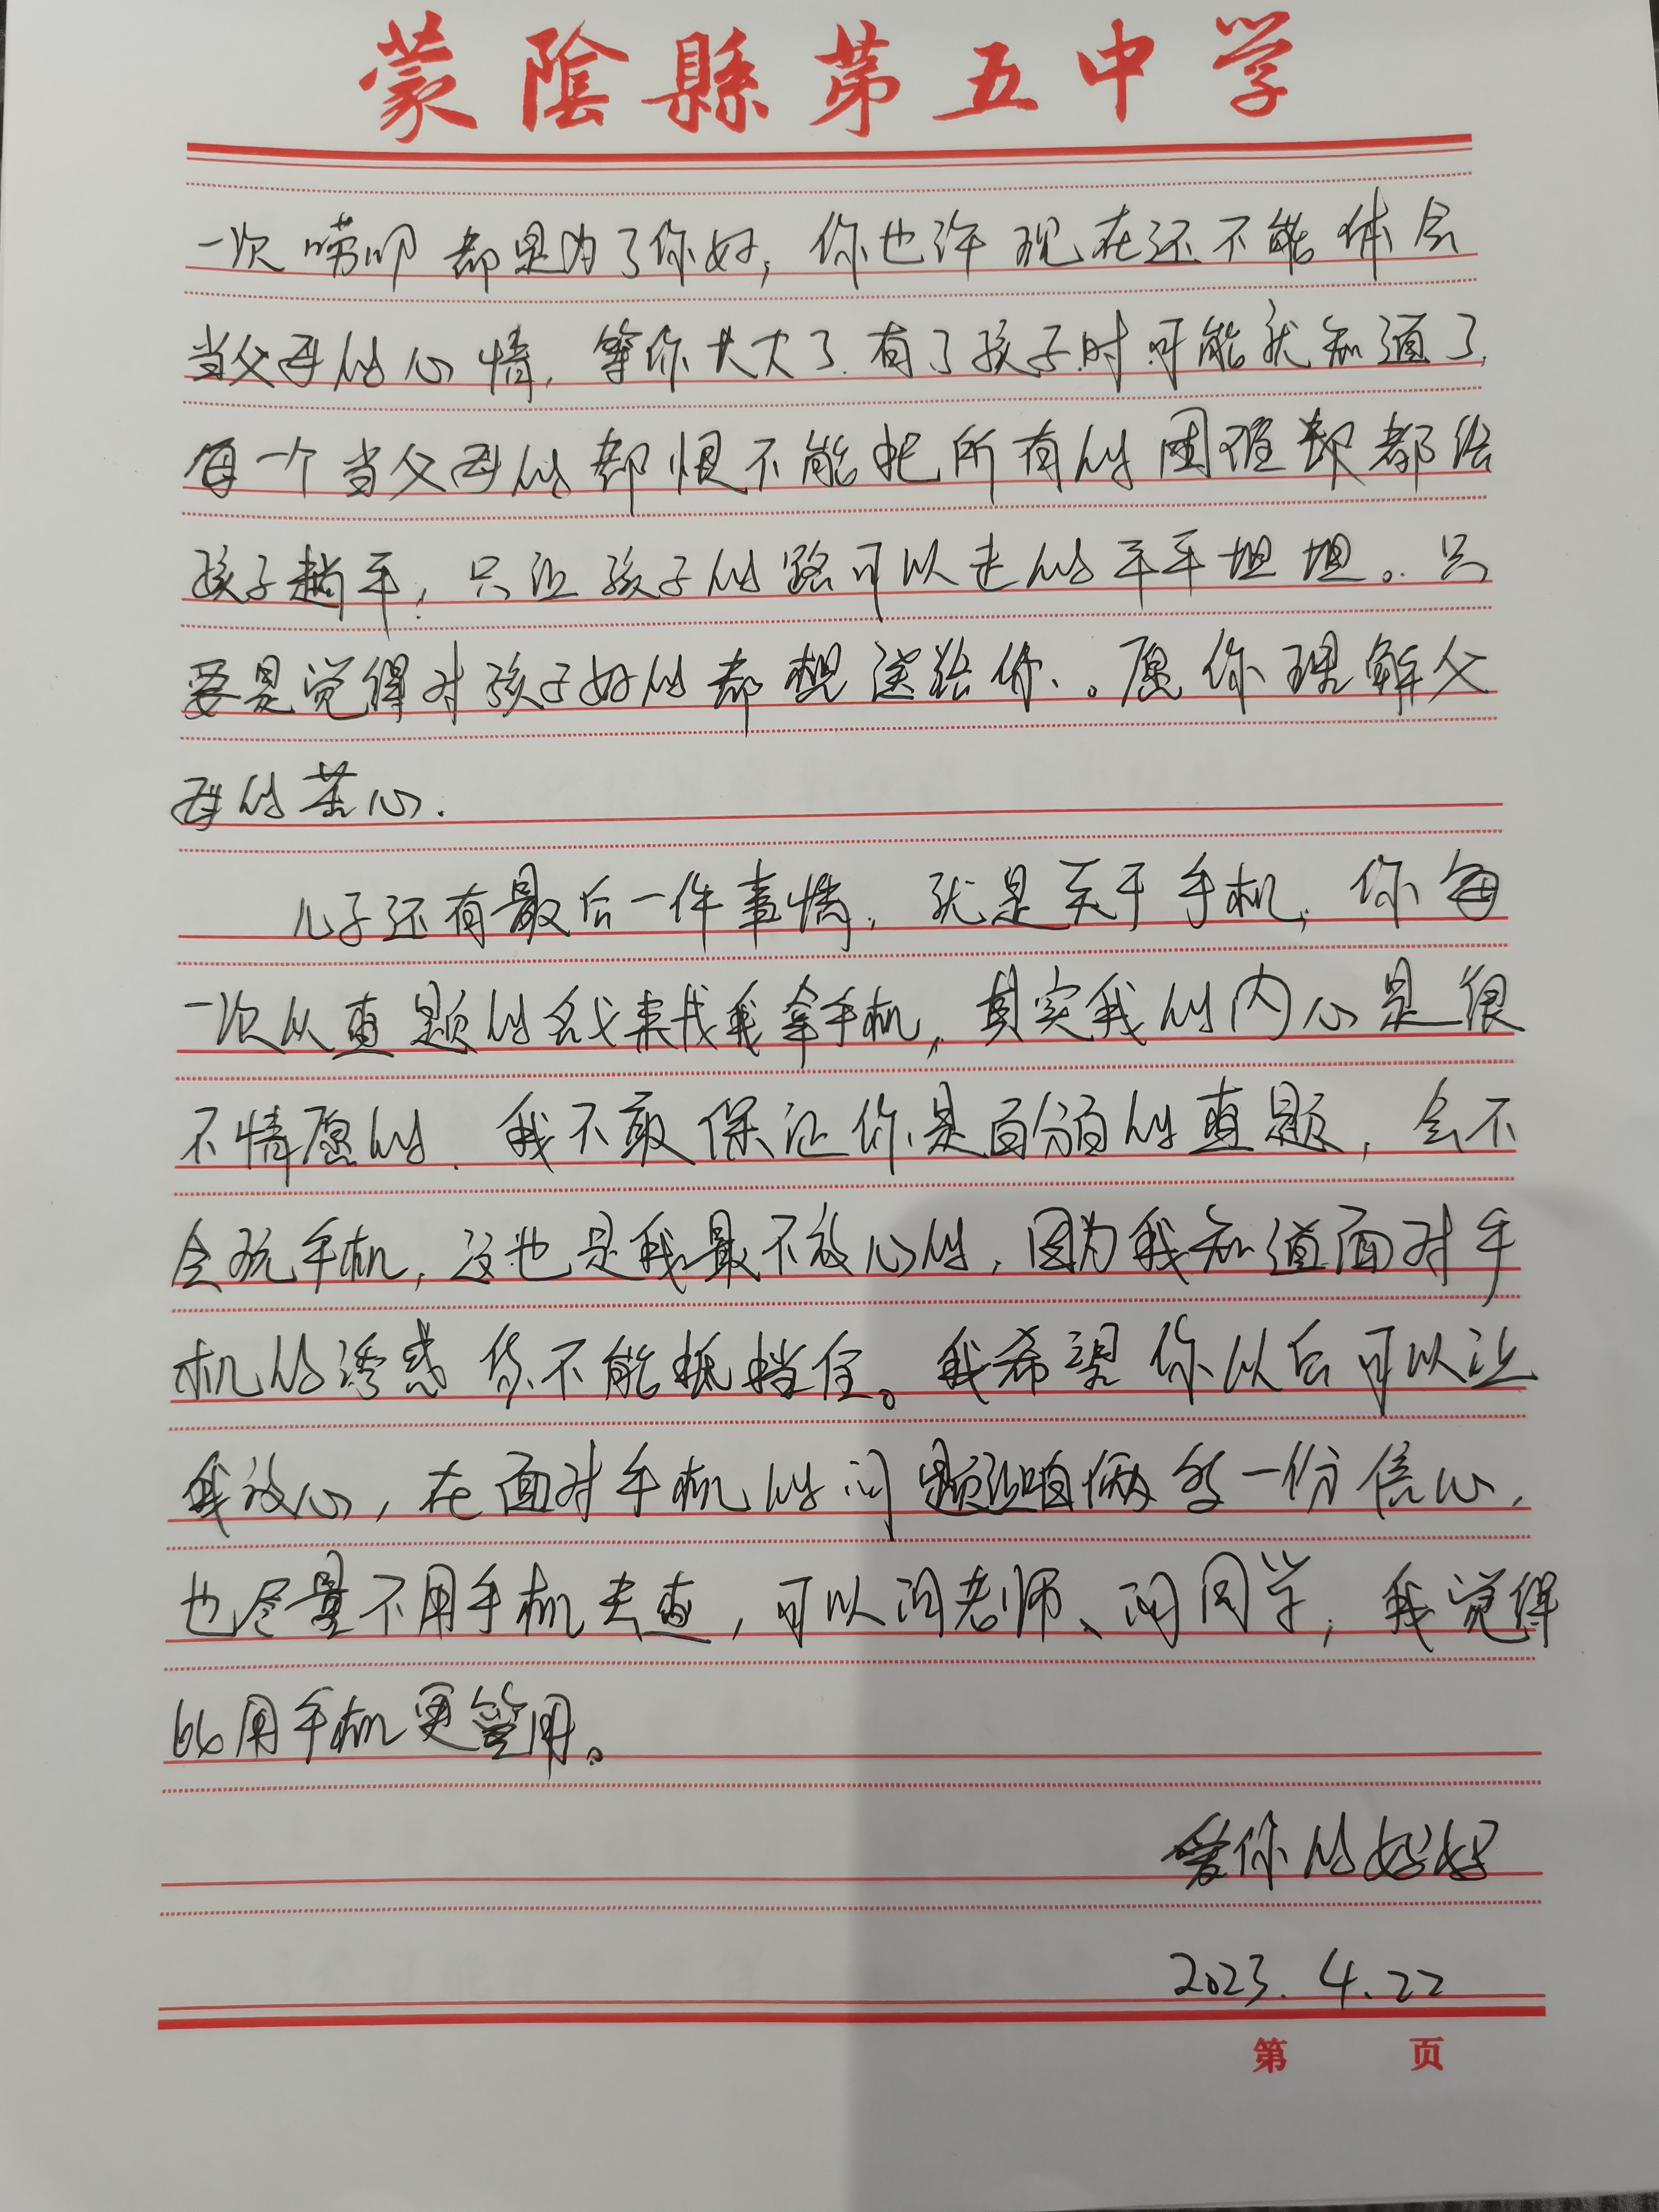 蒙陰縣第五中学
一次唠叨都是为了你好，你也许现在还不能体会
当父母的心情，等你长大了.有了孩子时可能就知道了，
每一个当父母的都恨不能把所有的困难都都给
孩子趟平，只让孩子的路可以走的平平坦坦。只
要是觉得对孩子好的都想送给你。愿你理解父
母的苦心.
儿子还有最后一件事情，就是关于手机，你每
一次以查题的名义来找我拿手机，其实我的内心是很
不情愿的.我不敢保证你是百分百的查题，会不
会玩手机，这也是我最不放心的，因为我知道面对手
机的诱惑你不能抵挡住。我希望你以后可以让
我放心，在面对手机的问题让咱俩多一份信心，
也尽量不用手机去查，可以问老师、问同学，我觉得
比用手机更管用。
爱你的妈妈
2023.4.22
第 页